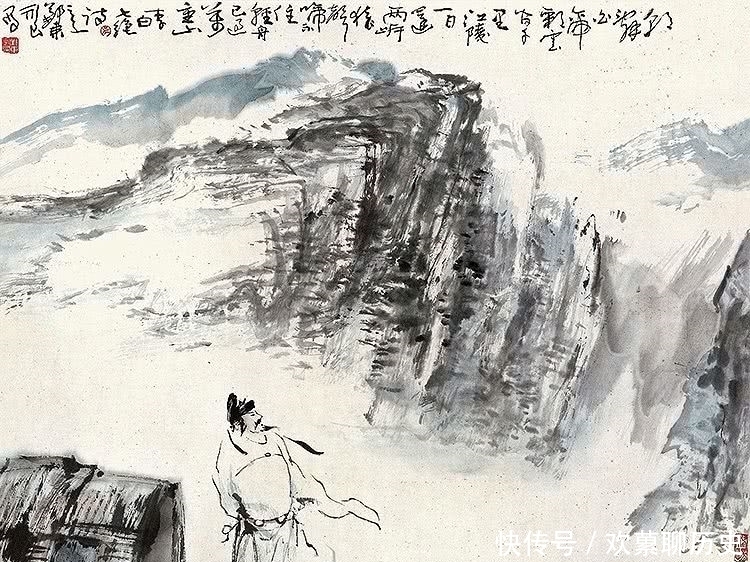 朝
辞白
帝
彩雲
间千
里
江陵
一日
還
两岸
猿
聲
啼不
住
輕舟
已过
萬
重山
李
白
诗
快传号 / 欢菓聊历史